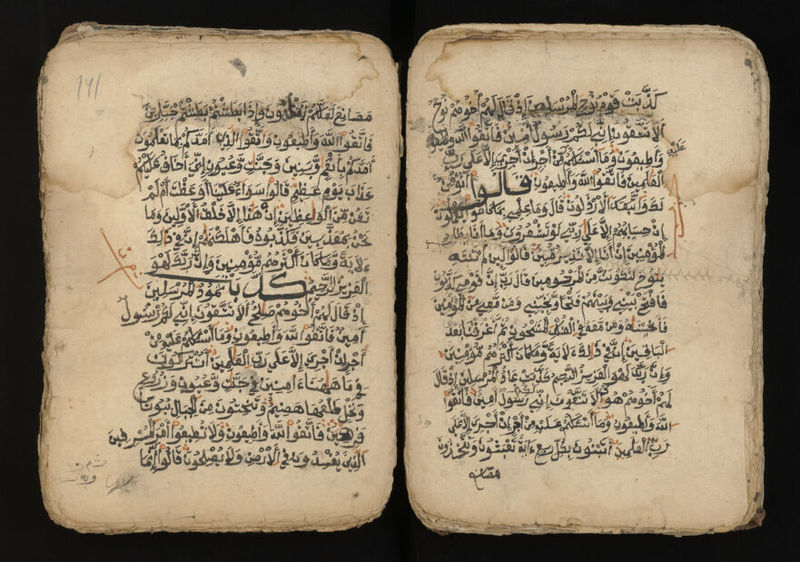 كذبت قوم نوح المرسلين إذ قال لهم أخوهم نوح
ألا تتقون إني لكم رسول أمين فاتقوا الله وأطيعون
وأطيعون وما أسئلكم عليه من أجر إن أجري إلا على رب
العلمين فاتقوا الله وأطيعون قالوا أنؤمن
لك واتبعك الأرذلون قال وما علمي بما كانوا يعملون
إن حسابهم إلا على ربي لو تشعرون وما أنا بطارد
المؤمنين إن أنا إلا نذير مبين قالوا لين لم تنته
ينوح لتكونن من المرجومين قال رب إن قومي كذبون
فافتح بيني وبينهم فتحا ونجني ومن معي من المؤمنين
فأنجينه ومن معه في الفلك المشحون ثم أغرقنا بعد
الباقين إن في ذلك ءلاية وما كان أكثرهم مؤمنين
وإن ربك لهو العزيز الرحيم كذبت عاد المرسلين إذ قال
لهم أخوهم هود ألا تتقون إني لكم رسول أمين فاتقوا
الله وأطيعون وما أسئلكم عليه من أجر إن أجري إلا على
رب العلمين أتبنون بكل ريع ءاية تعبثون وتتخذون
مصانع
١٧١
مصانع لعلكم تخلدون وإذا بطشتم بطشتم جبارين
فاتقوا الله وأطيعون واتقوا الذي أمدكم بما تعلمون
أمدكم بأنعم وبنين وجنت وعيون إني أخاف عليكم
عذاب يوم عظيم قالوا سواء علينا أوعظت أم لم
تكن من الواعظين إن هذا إلا خلق الأولين وما
نحن بمعذبين فكذبوه فأهلكنهم إن في ذلك
ءلاية وما كان أكثرهم مؤمنين وإن ربك لهو
العزيز الرحيم كذبت ثمود المرسلين
إذ قال لهم أخوهم صلح ألا تتقون إني لكم رسول
أمين فاتقوا الله وأطيعون وما أسئلكم عليه من
أجر إن أجري إلا على رب العلمين أتتركون
في ما ههنا ءامنين في جنت وعيون وزروع
ونخل طلعها هضيم وتنحتون من الجبال بيوتا
فرهين فاتقوا الله وأطيعون ولا تطيعوا أمر المسرفين
الذين يفسدون في الأرض ولا يصلحون قالوا إنما